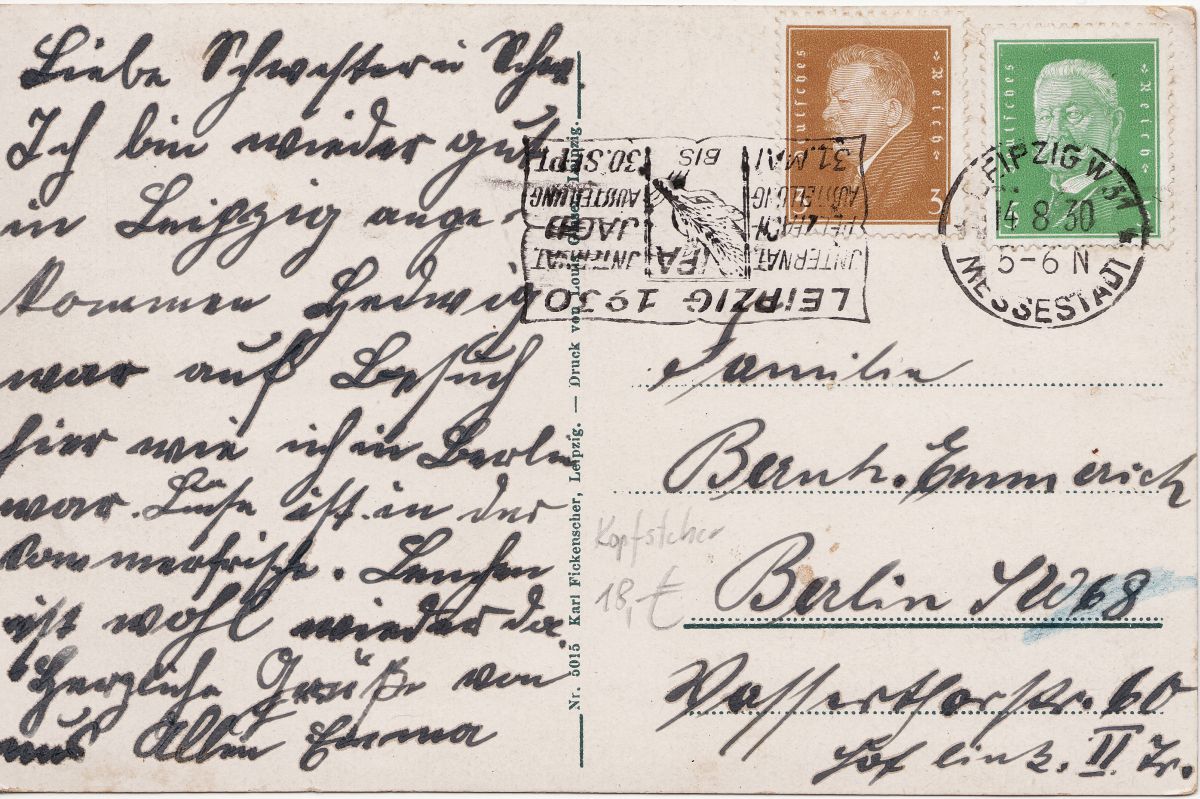 Liebe Schwester u Schw.
Ich bin wieder gut
in Leipzig ange-
kommen Hedwig
war auf Besuch
hier wie ich in Berlin
war. Luise ist in der
Sommerfrische. Lenchen
ist wohl wieder da.
Herzliche Grüße von
uns Allen Emma
Nr. 5015 Karl Fickenscher, Leipzig. — Druck von Louis Leipzig.
Deutsches Reich
3
Deutsches Reich
LEIPZIG 1930
INTERNAT. PELZFACH AUSSTELLUNG
31. MAI
IPA
BIS
INTERNAT. JAGD AUSSTELLUNG
30. SEPT.
LEIPZIG W.31
14 8.30
5-6 N
MESSESTADT
Familie
Bernh. Emmerich
Berlin SW 68
Wasserthorstr. 60
Hof link. II Tr.
Kopfsteher
18,-€